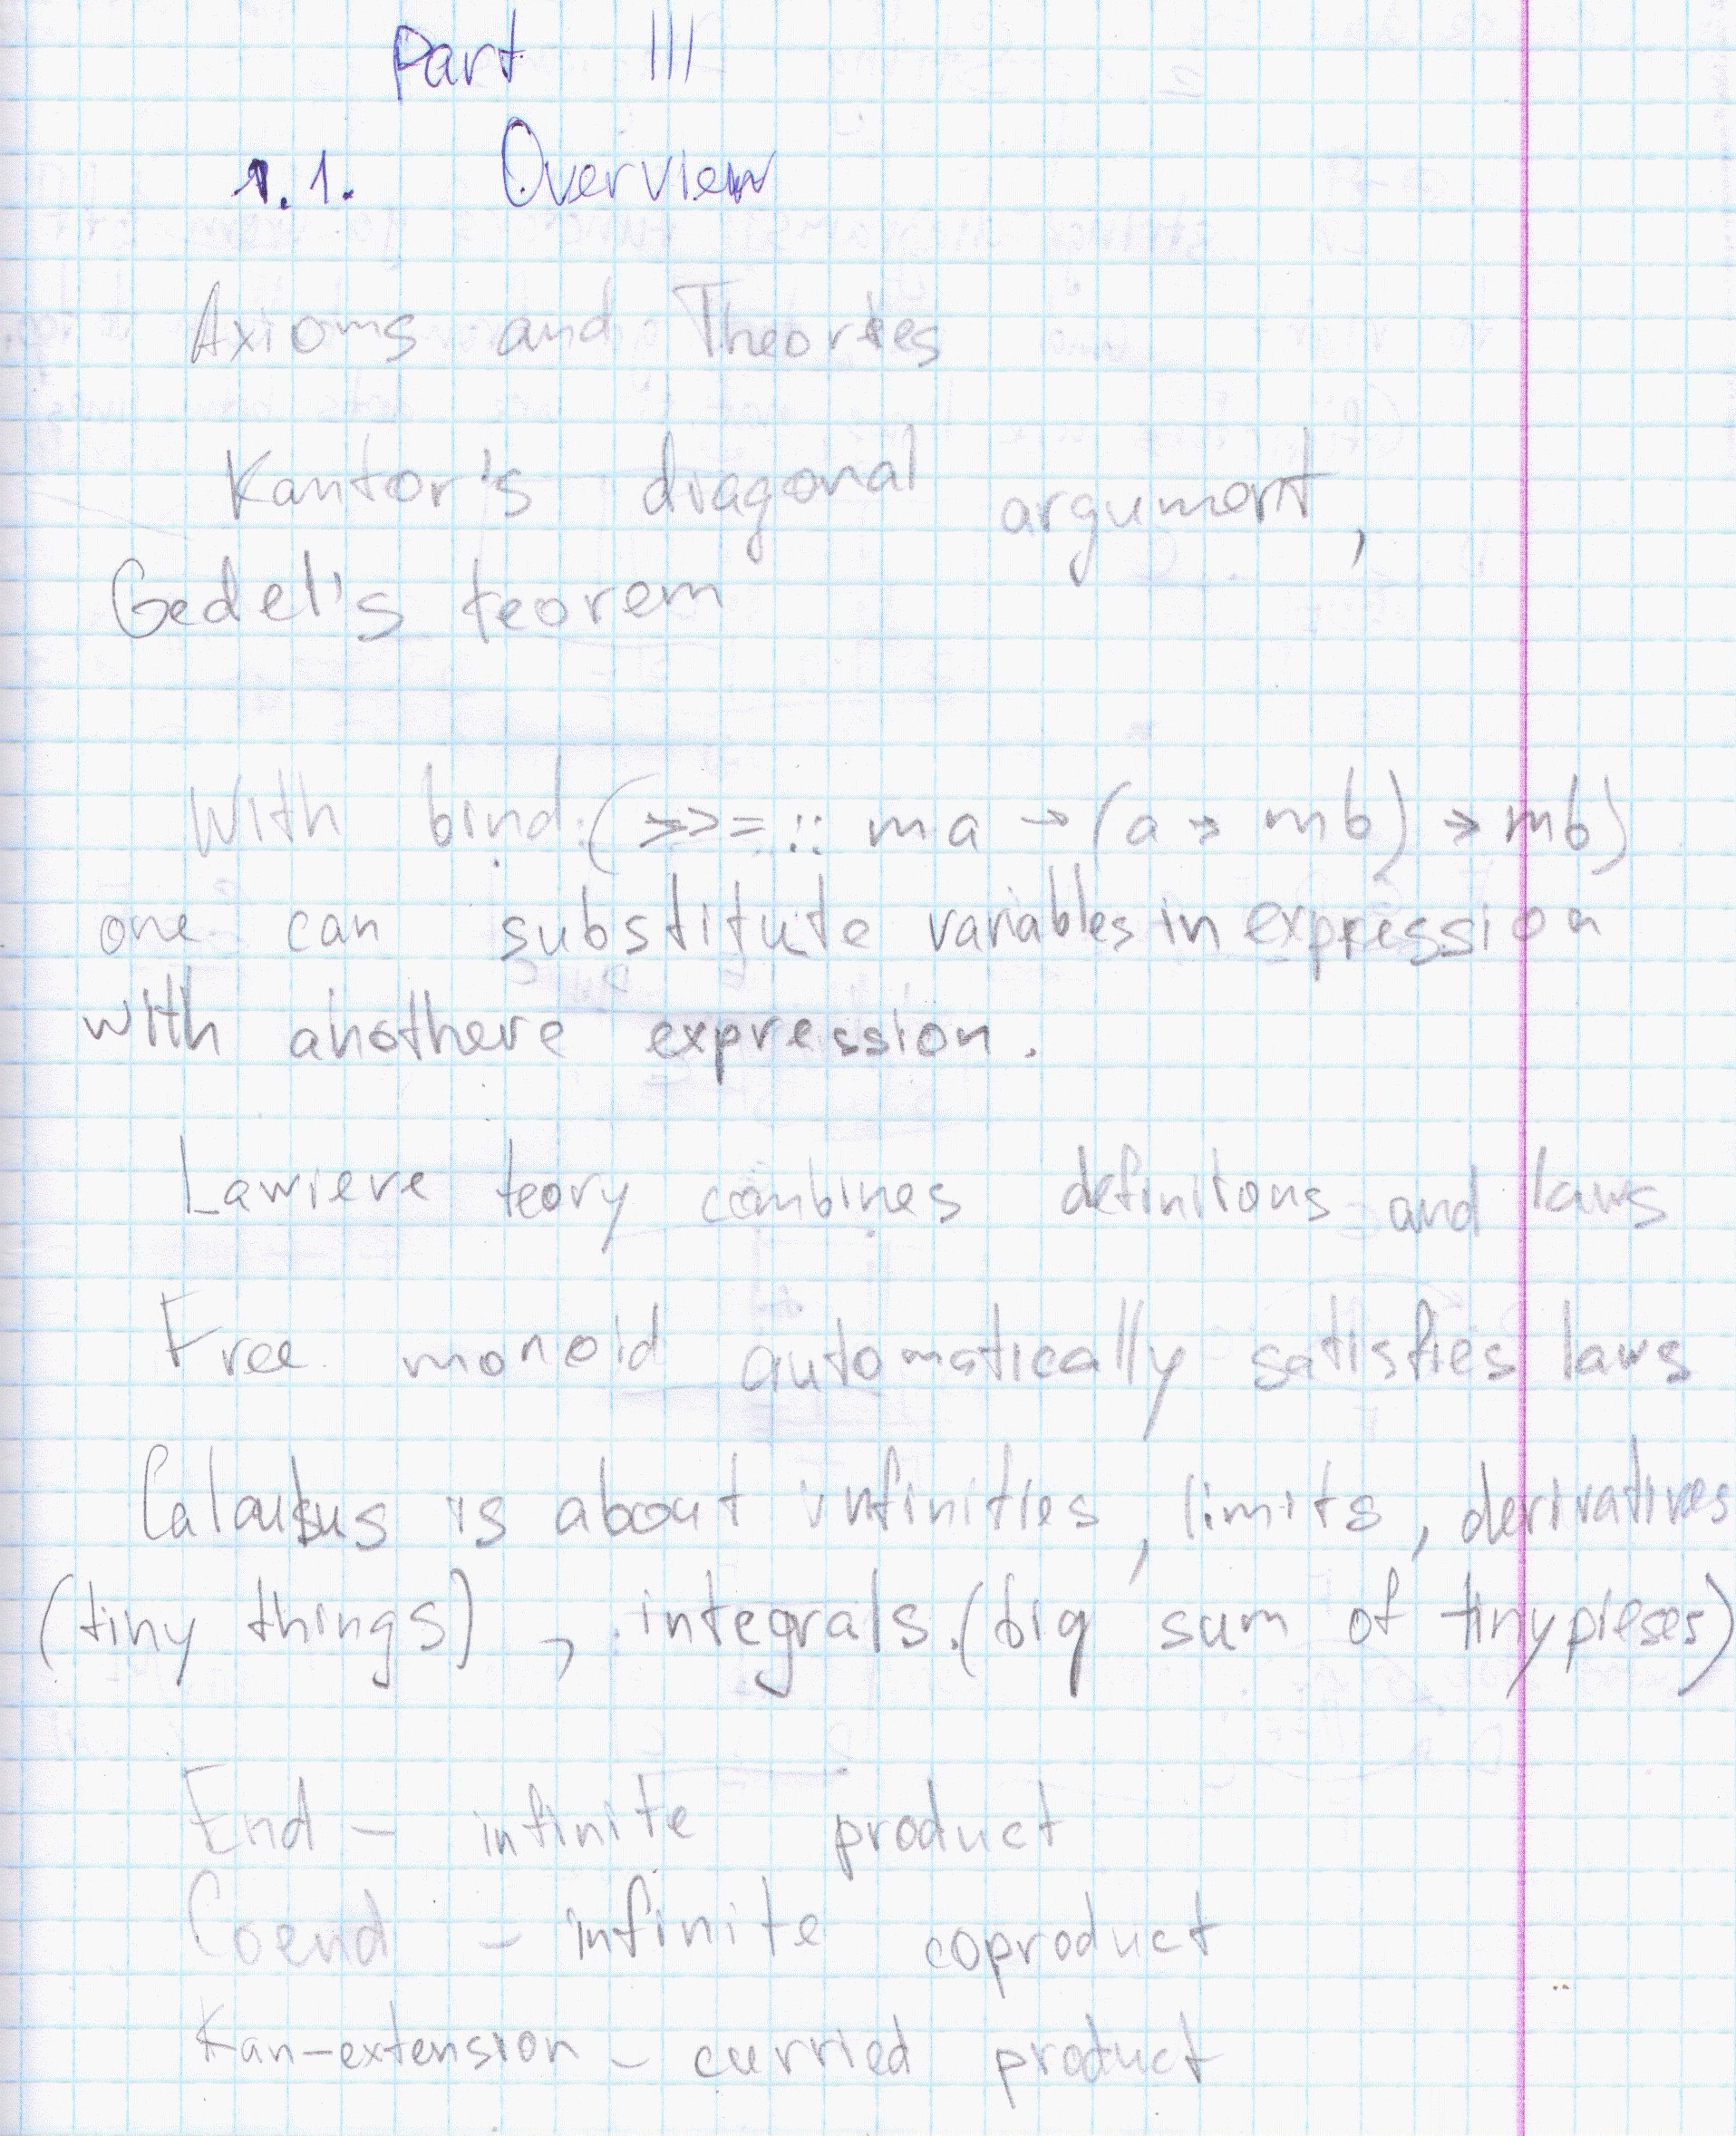 Part III
1.1. Overview
Axioms and Theories
Kantor's diagonal argument,
Gedel's teorem
With bind:(>>= :: ma → (a → mb) → mb)
one can substitute variables in expression
with anothere expression.
Lawviere teory combines definitons and laws
Free monoid automatically satisfies laws
Calculus is about infinities, limits, derivatives
(tiny things), integrals.(big sum of tiny pieses)
End – infinite product
Coend – infinite coproduct
Kan-extension – curried product